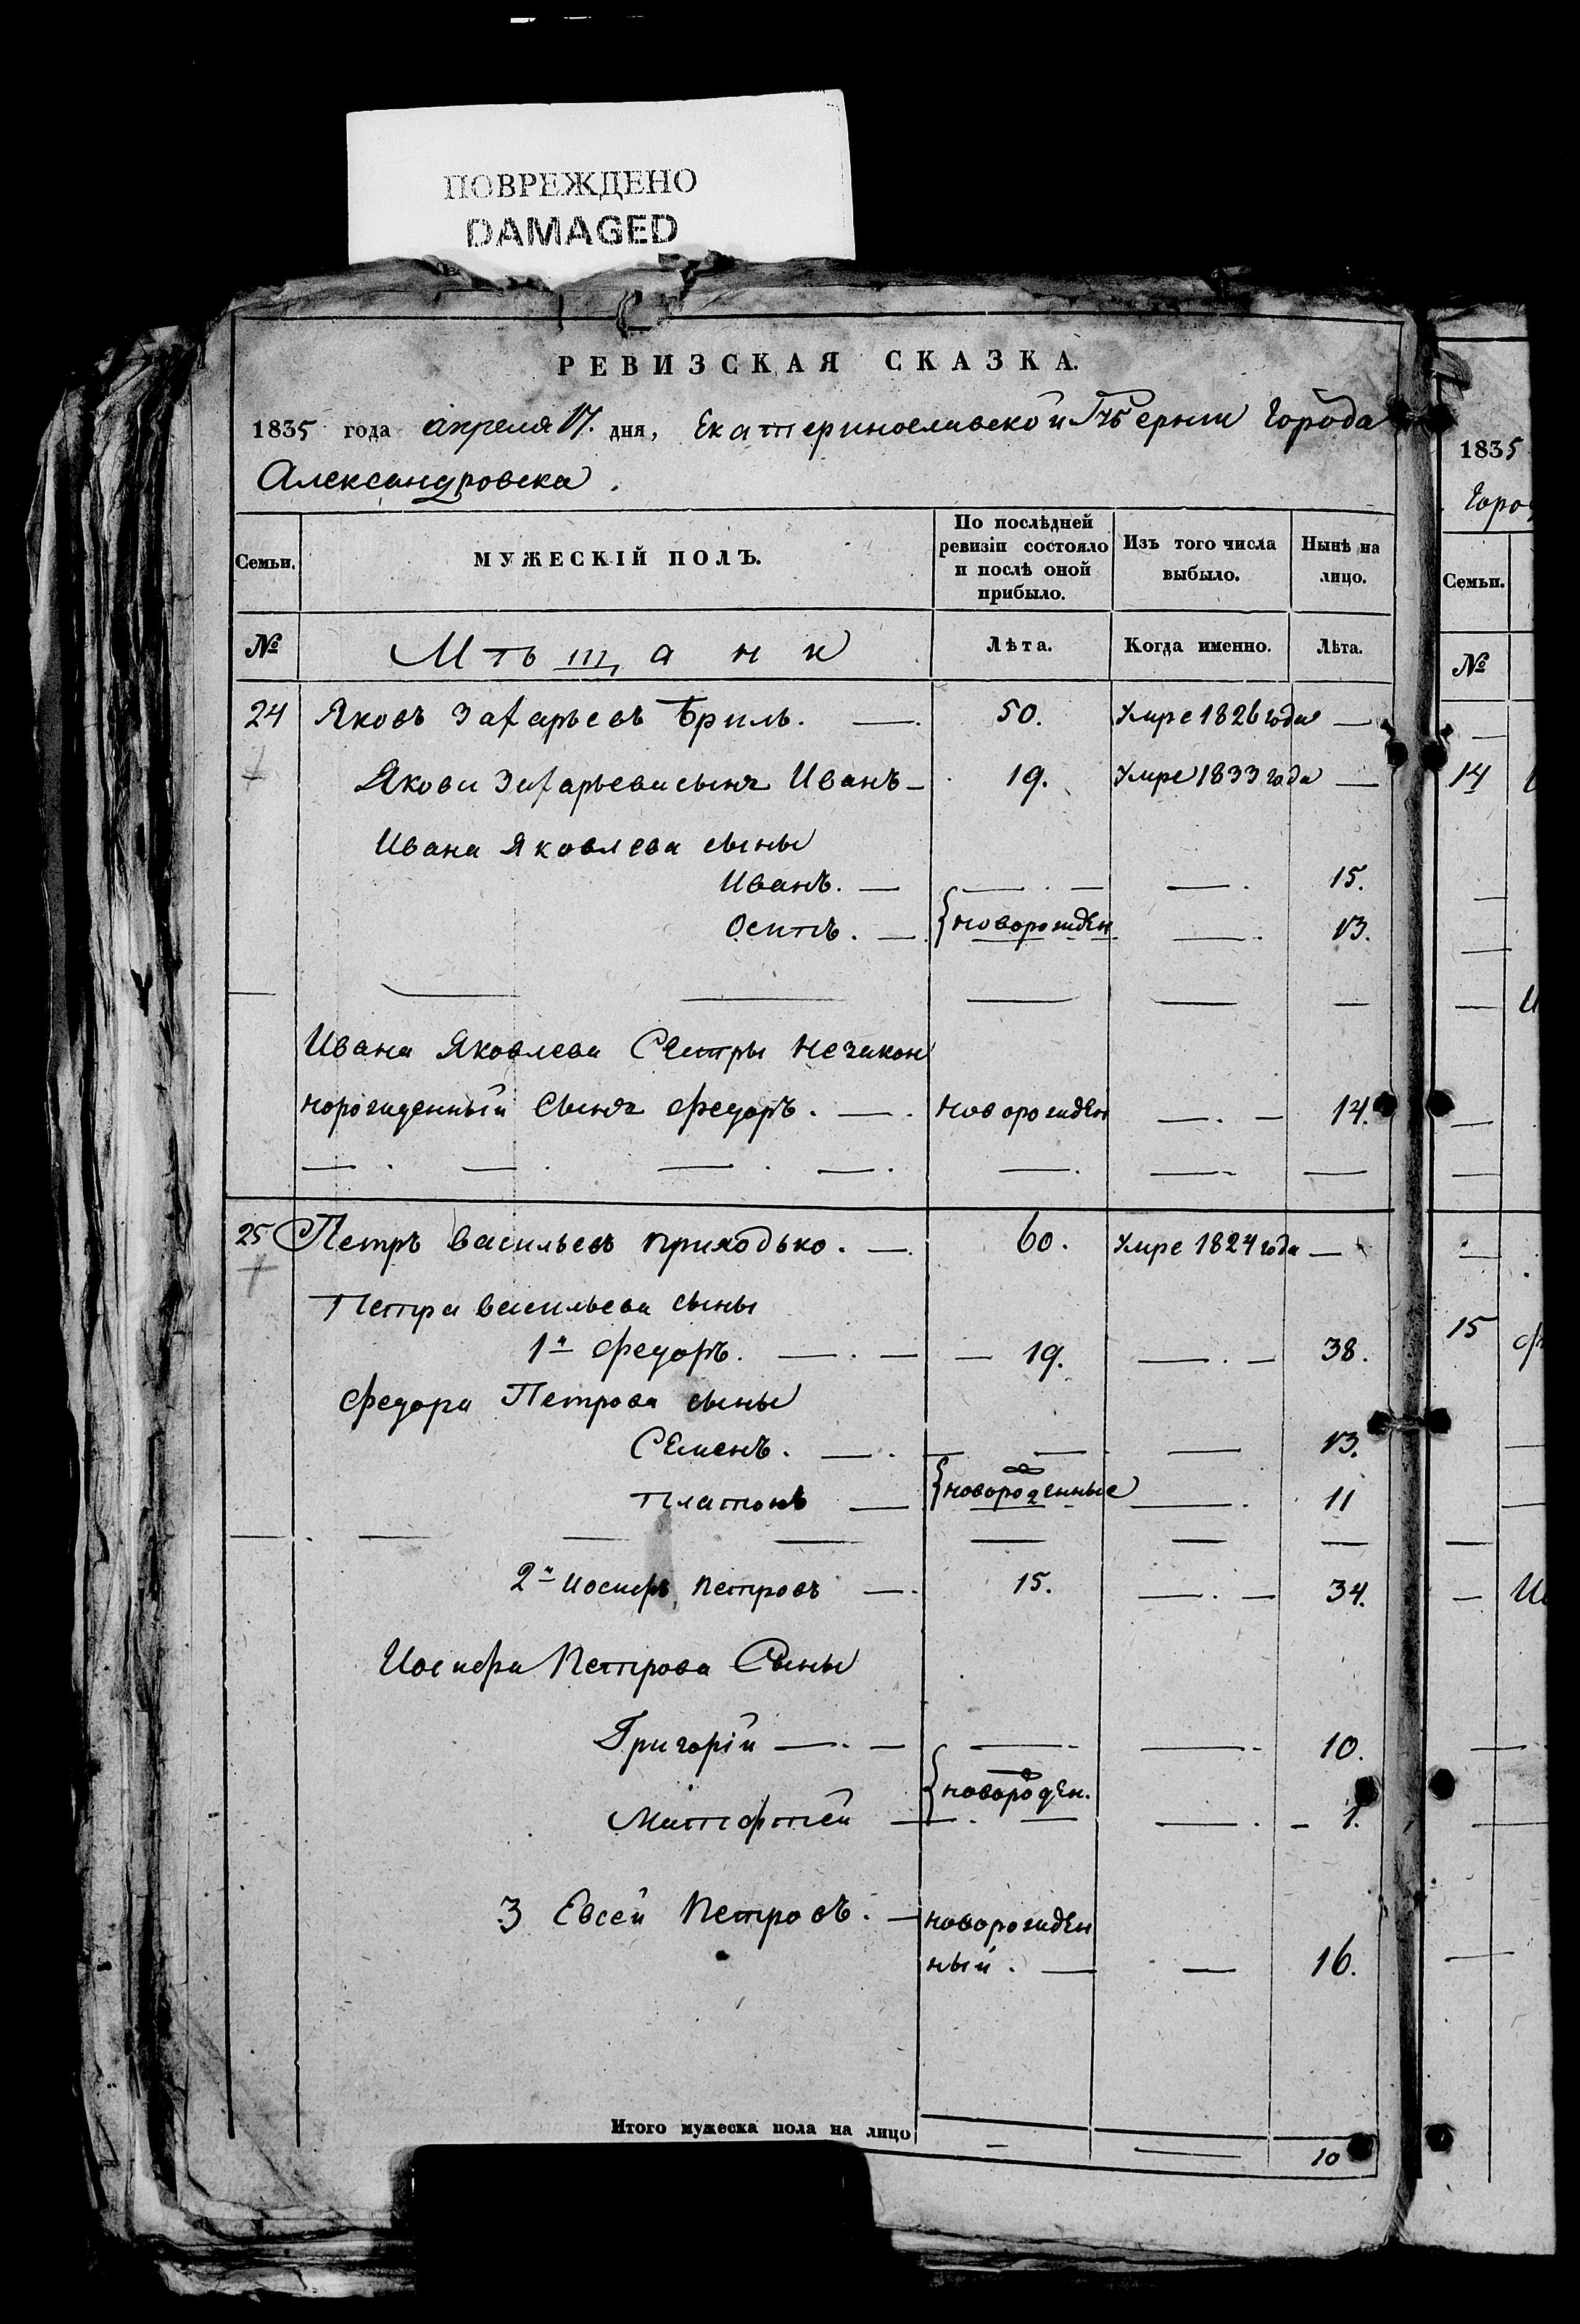 ПОВРЕЖДЕНО
DAMAGED
РЕВИЗСКАЯ СКАЗКА.
1835 года апреля 17. дня, Екатеринославской Губернии Города
Александровска.
Семьи.
МУЖЕСКІЙ ПОЛЪ.
По послѣдней ревизіи состояло и послѣ оной прибыло.
Изъ того числа выбыло.
Нынѣ на лицо.
№ Мѣщани Лѣта. Когда именно. Лѣта.
24 Яковъ Захарьевъ Бриль. — 50. Умре 1826 года —
Якова Захарьева сынъ Иванъ — 19. Умре 1833 года —
Ивана Яковлева сыны
Иванъ. — — — — 15.
Осипъ. — новорожден — 13.
Ивана Яковлева Сестры незакон
норожденный Сынъ Федоръ. — новорожден — — 14.
25 Петръ Васильевъ Приходько. — 60. Умре 1824 года —
Петра Васильева сыны
1й Федоръ. — — — 19. — — 38.
Федора Петрова сыны
Семенъ. — — — — 13.
Платонъ — новорожденные — 11
2й Иосифъ Петровъ — 15. — — 34.
Иосифа Петрова Сыны
Григорій — — — — 10.
Матфтей — новорожден. — — 1.
3 Евсей Петровъ. — новорожден
ный. — — 16.
Итого мужеска пола на лицо — — 10
1835
Горо
Семьи.
№
14
15